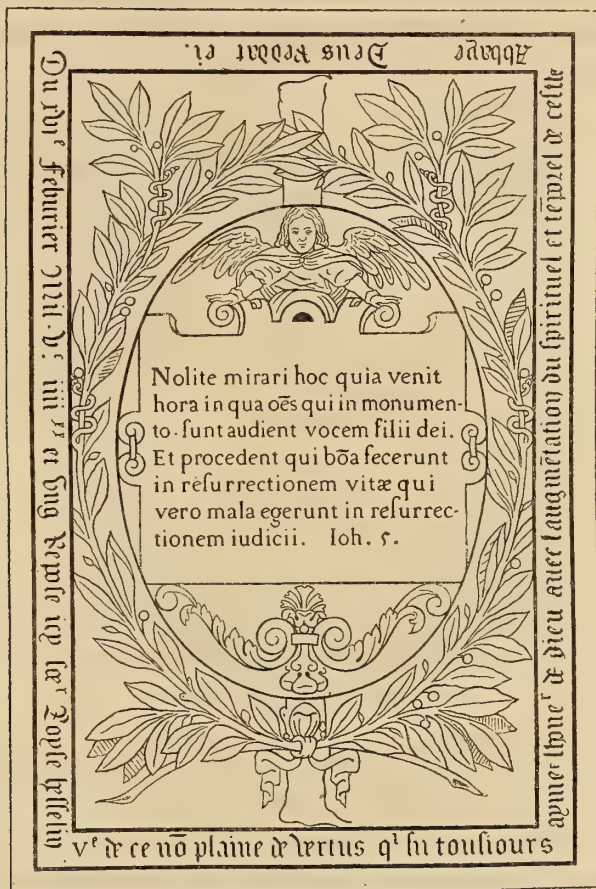 Du feburier Mil · vᶜ · iiii ˣˣ et ung Repose icy seʳ Loyse hesselin
vᵉ de ce nō plaine de vertus qⁱ fu tousiours
lhoneʳ de dieu avec laugmētation du spirituel et tēporel de ceste
Abbaye Deus Reddat ei.
Nolite mirari hoc quia venit
hora in qua oēs qui in monumen-
to · sunt audient vocem filii dei.
Et procedent qui bōa fecerunt
in resurrectionem vitæ qui
vero mala egerunt in resurrec-
tionem iudicii. Ioh. 5.